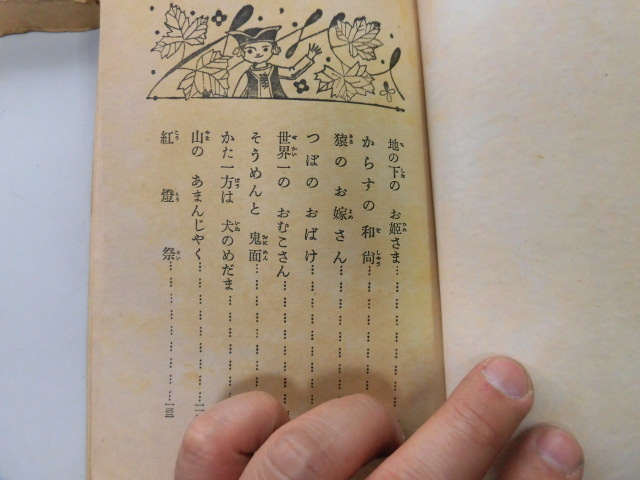 地の下の お姫さま
からすの 和尚
猿の お嫁さん
つぼの おばけ
世界一の おむこさん
そうめんと 鬼面
かた一方は 犬のめだま
山の あまんじゃく
紅燈祭